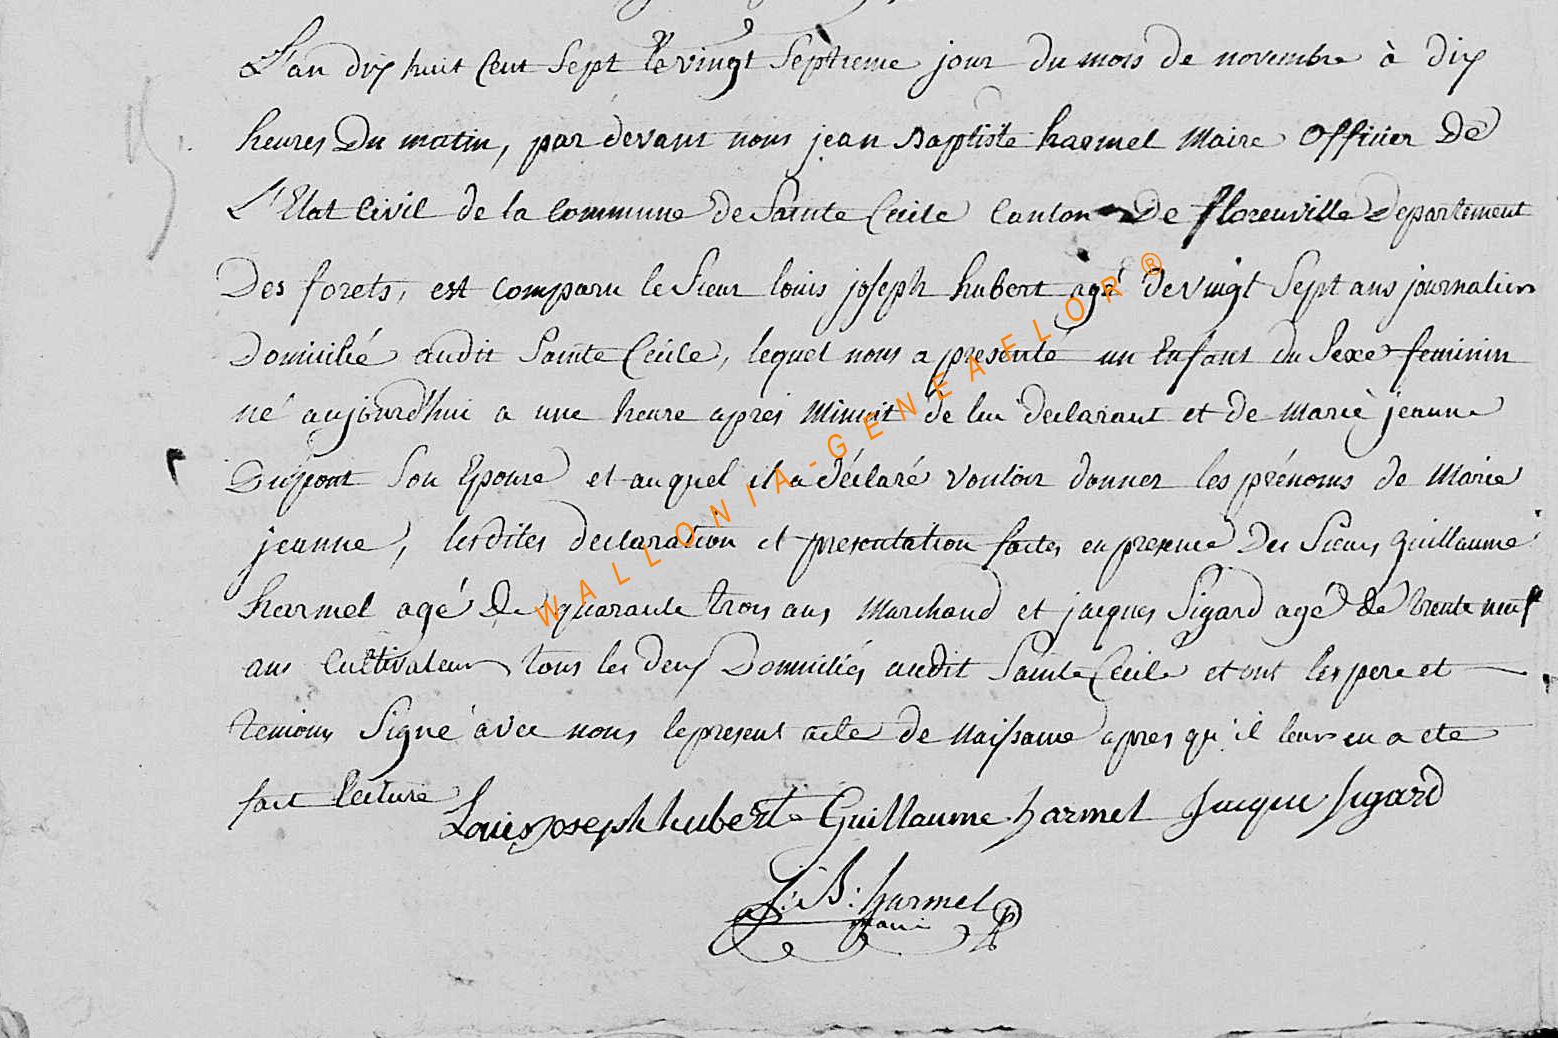 L'an dix huit Cent Sept le vingt Septieme jour du mois de novembre à dix
heures Du matin, par devant nous jean Baptiste harmel Maire Officier De
L'Etat Civil de la Commune de Sainte Cecile Canton De florenville Departement
Des forets, est comparu le Sieur louis joseph hubert agé de vingt Sept ans journalier
Domicilié audit Sainte Cecile, lequel nous a presenté un Enfant du Sexe feminin
né aujourd'hui a une heure après Minuit de lui declarant et de Marie jeanne
Dupont Son Epouse et auquel il a déclaré vouloir donner les prénoms de Marie
jeanne, lesdites declaration et presentation faites en presence Des Sieurs guillaume
harmel agé De quarante trois ans Marchand et jacques Sigard agé de trente neuf
ans Cultivateur tous les deux Domiciliés audit Sainte Cecile et ont les pere et
temoins Signé avec nous le present acte de Naissance apres qu'il leur en a ete
fait lecture
Louis joseph hubert Guillaume harmel Jacque Sigard
J: B: harmel
maire
WALLONIA-GENEAFLOR ®